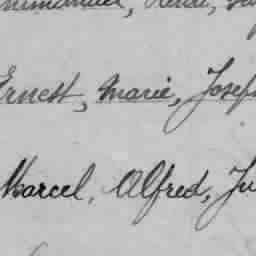 Ernest, Marie, Josep
Marcel, Alfred, Ju